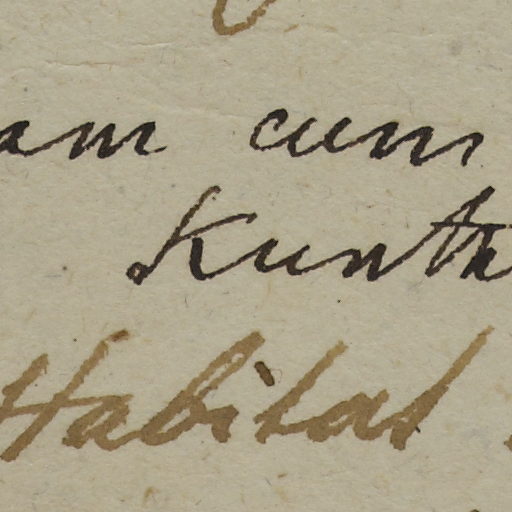 am cum
Kunth
Habitat